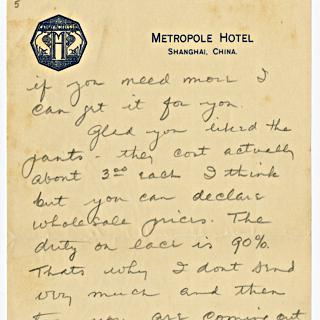 5
M
METROPOLE HOTEL
SHANGHAI, CHINA.
if you need more I
can get it for you.
Glad you liked the
pants - they cost actually
about 3.00 each I think
but you can declare
wholesale prices. The
duty on lace is 90%.
Thats why I dont send
very much and then
too you are coming out